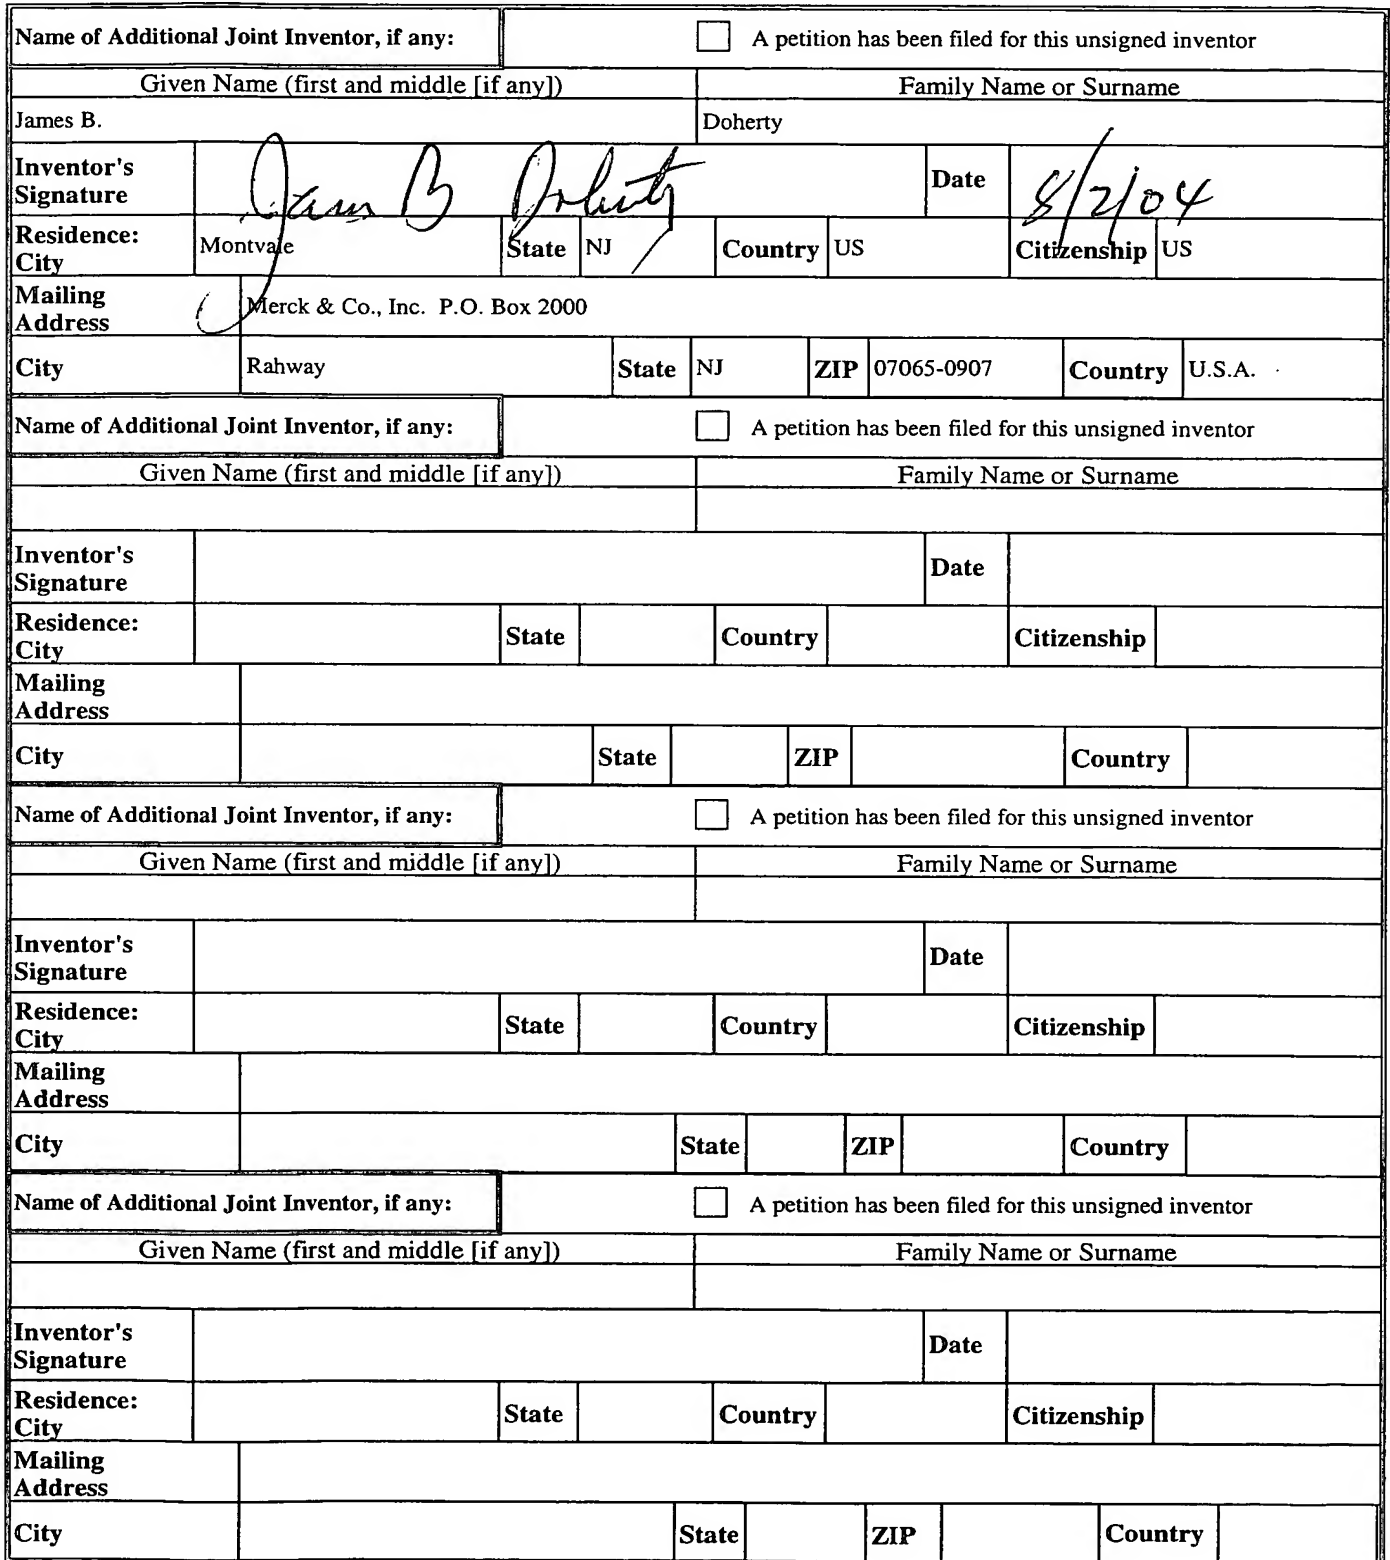 Name of Additional Joint Inventor, if any: A petition has been filed for this unsigned inventor
Given Name (first and middle [if any]) Family Name or Surname
James B. Doherty
Inventor's Signature James B Doherty Date 8/2/04
Residence: City Montvale State NJ Country US Citizenship US
Mailing Address Merck & Co., Inc. P.O. Box 2000
City Rahway State NJ ZIP 07065-0907 Country U.S.A.
Name of Additional Joint Inventor, if any: A petition has been filed for this unsigned inventor
Given Name (first and middle [if any]) Family Name or Surname
Inventor's Signature Date
Residence: City State Country Citizenship
Mailing Address
City State ZIP Country
Name of Additional Joint Inventor, if any: A petition has been filed for this unsigned inventor
Given Name (first and middle [if any]) Family Name or Surname
Inventor's Signature Date
Residence: City State Country Citizenship
Mailing Address
City State ZIP Country
Name of Additional Joint Inventor, if any: A petition has been filed for this unsigned inventor
Given Name (first and middle [if any]) Family Name or Surname
Inventor's Signature Date
Residence: City State Country Citizenship
Mailing Address
City State ZIP Country